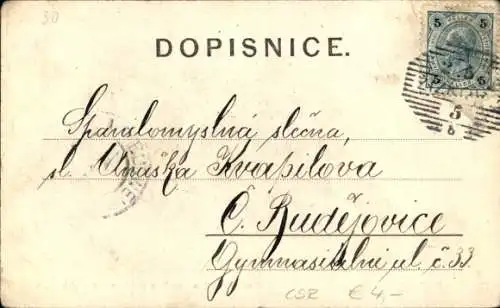 30
DOPISNICE.
5 5
Spanilomyslná slečna,
sl. Anuška Kvapilova
Č. Budějovice
Gymnasialní ul. č. 33.
5
CSR € 4,-